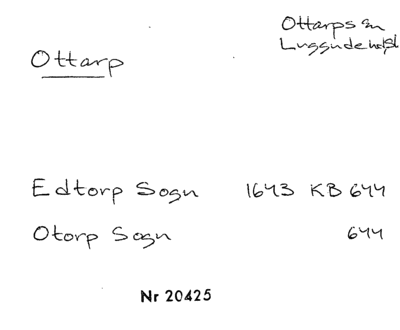 Ottarps sn
Luggude hd
Ottarp
Edtorp Sogn 1643 KB 644
Otorp Sogn 644
Nr 20425